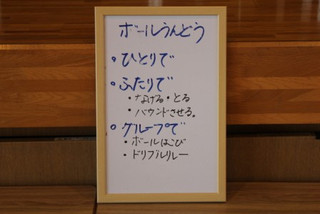 ボールうんどう
・ひとりで
・ふたりで
・なげる・とる
・バウンドさせる。
・グループで
・ボールはこび
・ドリブルリレー